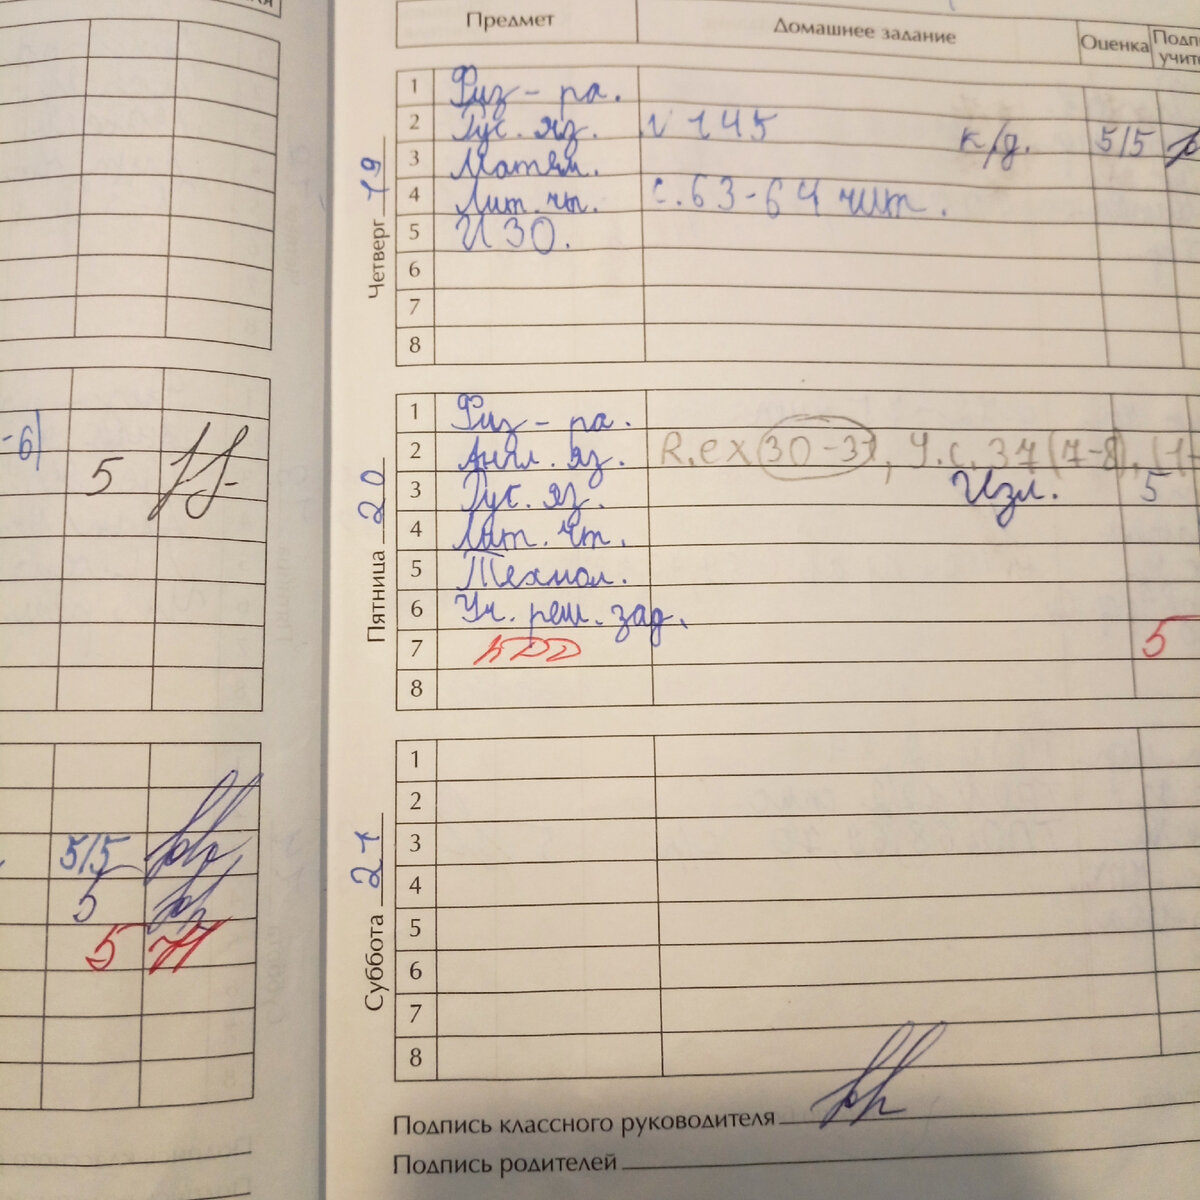 Предмет Домашнее задание Оценка
Четверг 19
1 Физ-ра.
2 Рус. яз. № 145 к/д. 5/5
3 Матем.
4 Лит. чт. с. 63-64 чит.
5 ИЗО.
6
7
8
-6)
5
Пятница 20
1 Физ-ра.
2 Англ. яз. R. ex 30-31, У. с. 37 (7-8), (1
3 Рус. яз. Изл. 5
4 Лит. чт.
5 Технол.
6 Уч. реш. зад.
7 5
8
5/5
5
5
Суббота 21
1
2
3
4
5
6
7
8
Подпись классного руководителя
Подпись родителей